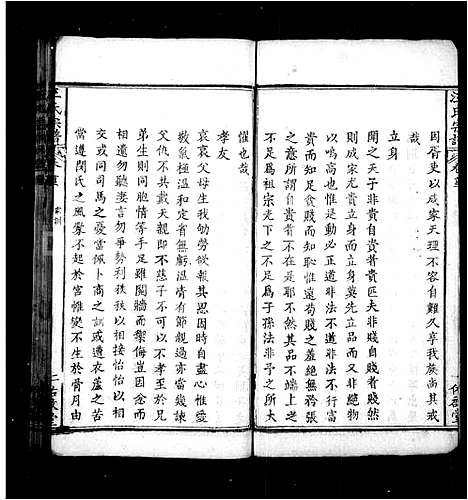 因胥吏以成家天理不容自難久享我族尚其戒
哉
立身
聞之天子非賤自貴者貴匹夫非賤自賤者賤成己
則成家光貴立身而立身莫先貴有志
鳴高也惟是動必正道非法不言而非絕物
貴而知足貪賤而知恥惟遠苟賤之羞絕無矜張
之意所謂自貴者不在是耶然其非法非予之所大
不足為祖宗光下之不足為子孫法非予之所大
懼也哉
孝友
哀哀父母生我劬勞欲報其恩因時自盡心惟愛
敬氣極溫和定省無虧溫凊有節親過亦當幾諫
父仇不共戴天親即不慈子不可以不孝至於兄
弟生則同胞情等手足雖鬩牆而禦侮豈因忿而
構禍勿聽妻言勿爭勢利秩秩以相接怡怡以相
交或同司馬之憂當佩卜商之訓或遭衣蘆之苦
當遵閔氏之風鳳不起於宮帷變不生於骨月由